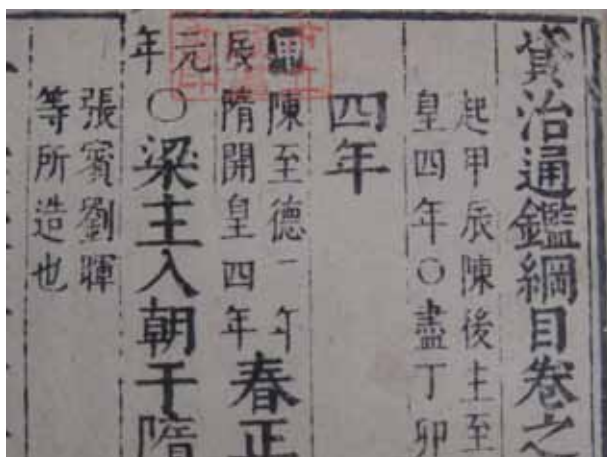 資治通鑑綱目卷之
起甲辰陳後主至
皇四年○盡丁卯
四年
甲陳至德二年
辰隋開皇四年
春正
元
年○梁主入朝于隋
張賓劉暉
等所造也